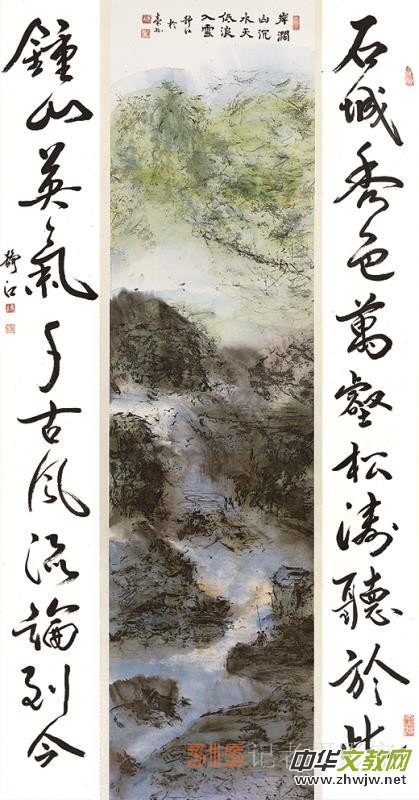 石城秀色萬壑松濤聽於此
岸濶
山沉
水天
低浪
入雲
靜江
於
鐘山英氣千古風流論到今
靜江
记者
中华文教网
www.zhwjw.net